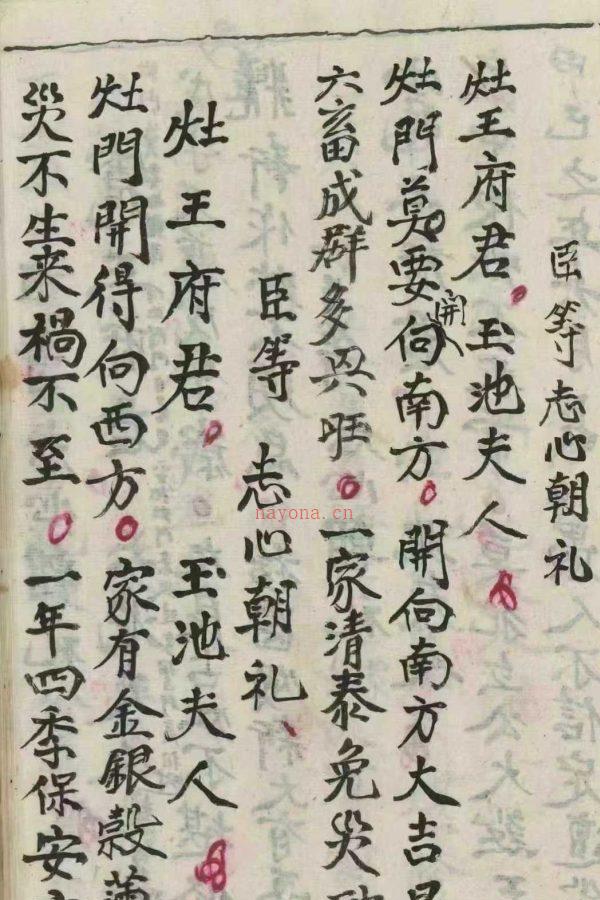 臣等志心朝礼
灶王府君。玉池夫人
灶門莫要開向南方。開向南方大吉昌
六畜成群多兴旺。一家清泰免災
臣等 志心朝礼、
灶王府君。玉池夫人
灶門開得向西方。家有金銀穀滿
災不生来禍不至。一年四季保安
nayona.cn